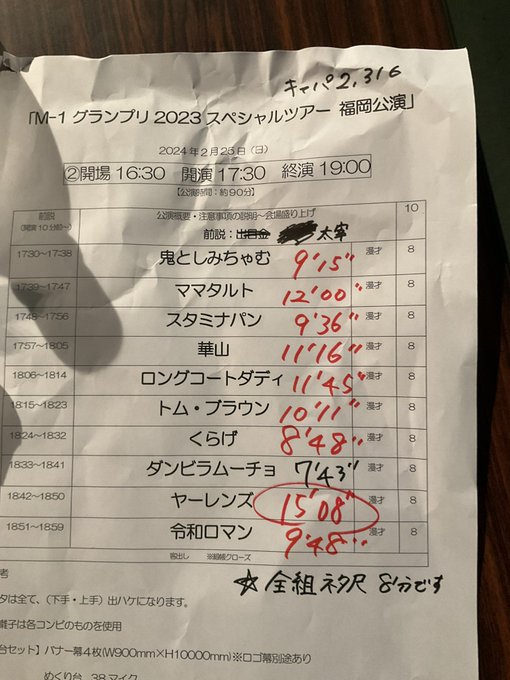 キャパ2,316
「M-1 グランプリ 2023 スペシャルツアー 福岡公演」
2024年2月25日(日)
②開場 16:30 開演 17:30 終演 19:00
【公演時間:約90分】
前説 公演概要・注意事項の説明~会場盛り上げ 10
(開演10分前~) 前説:出目金 太宰
1730~17:38 鬼としみちゃむ 9'15" 漫才 8
17:39~17:47 ママタルト 12'00" 漫才 8
17:48~17:56 スタミナパン 9'36" 漫才 8
17:57~18:05 華山 11'16" 漫才 8
18:06~1814 ロングコートダディ 11'45" 漫才 8
18:15~18:23 トム・ブラウン 10'11" 漫才 8
1824~1832 くらげ 8'48" 漫才 8
1833~1841 ダンビラムーチョ 7'43" 漫才 8
18:42~1850 ヤーレンズ 15'08" 漫才 8
1851~1859 令和ロマン 9'48" 漫才 8
客出し ※緞帳クローズ
☆全組ネタ尺 8分です
考
タは全て、(下手・上手)出ハケになります。
囃子は各コンビのものを使用
台セット】バナー幕4枚(W900mm×H10000mm)※ロゴ幕別途あり
めくり台 38マイク